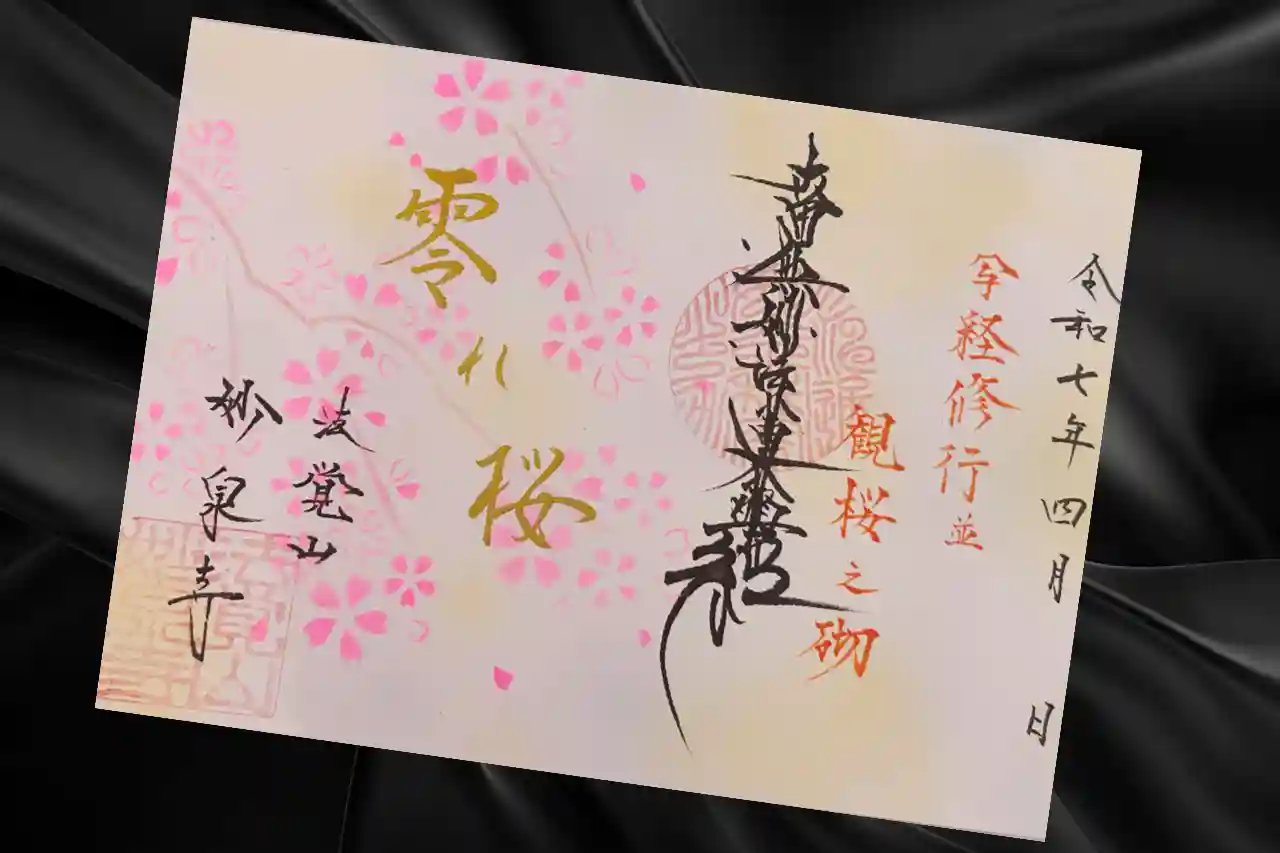 令和七年四月 日
写経修行並
観桜之砌
南無妙法蓮華経
零れ桜
覚山
妙泉寺